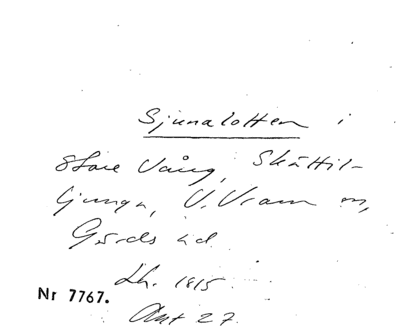 Sjunalotten i
Store Vång, Skättil-
ljunga, V. Vram sn,
Gärds hd.
Lh. 1815
Nr 7767.
Akt 27